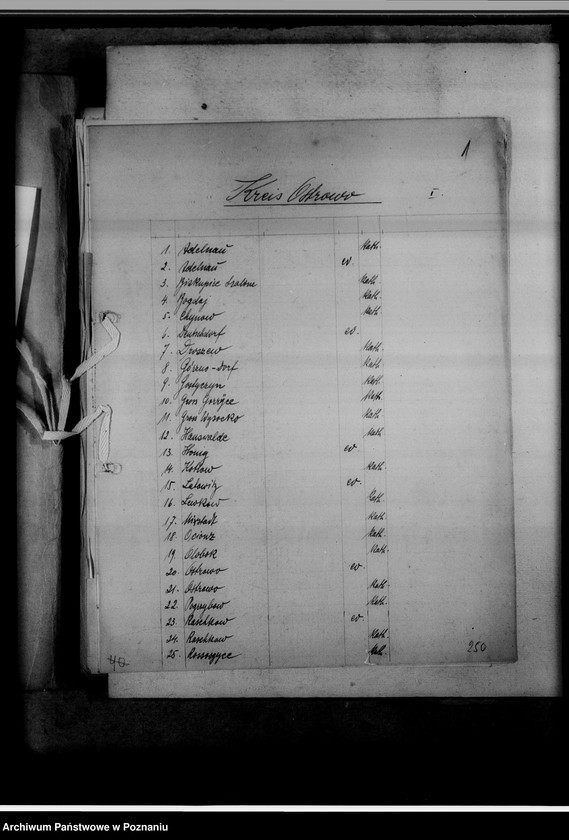 1
Kreis Ostrowo
I.
1. Adelnau Kath.
2. Adelnau ev.
3. Biskupice Kath.
4. Bogdaj Kath.
5. Chynow Kath.
6. Deutschdorf ev.
7. Droszew Kath.
8. Górzno-Dorf Kath.
9. Gostyczyn Kath.
10. Gross Gorzyce Kath.
11. Gross Wysocko Kath.
12. Hanswalde Kath.
13. Honig ev.
14. Kotlow Kath.
15. Latowitz ev.
16. Lewkow Kath.
17. Mixstadt Kath.
18. Ocionz Kath.
19. Olobok Kath.
20. Ostrowo ev.
21. Ostrowo Kath.
22. Pogrzybow Kath.
23. Raschkow ev.
24. Raschkow Kath.
25. Rossoszyce Kath.
40
250
Archiwum Państwowe w Poznaniu